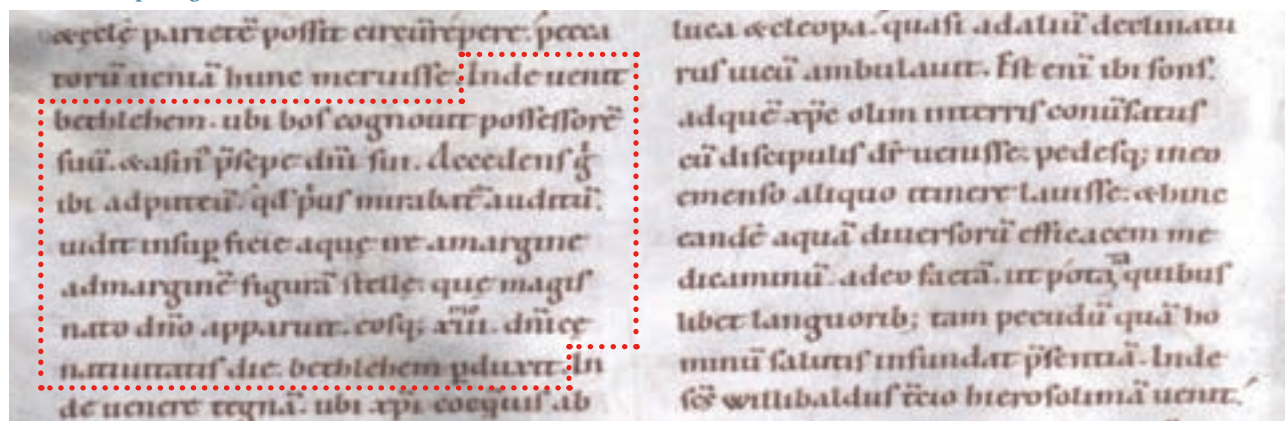 &ecclę pariete᷒ possit circu᷒irepere. pecca
toru᷒ uenia᷒ hunc meruisse. Inde uenit
bethlehem. ubi bos cognouit possessore᷒
suu᷒. & asin᷒ p̄sepe dn̄i sui. decedens g̊
ibi ad puteu᷒. qd̄ p̊us mirabat᷒ auditu᷒.
uidit in sup ficie aquę ut a margine
ad margine᷒ figura᷒ stellę. quę magis
nato dn̄o apparuit. eosq; xiii. dn̄icę
natiuitatis die. bethlehem pduxit. In
de uenere tegna᷒. ubi xp̄i coęquis ab
luca & cleopa. quasi ad aliu᷒ declinatu
rus uicu᷒ ambulauit. Est eni᷒ ibi fons.
ad que᷒ xp̄c olim in terris conu᷒satus
cu᷒ discipulis dr̄ uenisse. pedesq; in eo
emenso aliquo itinere lauisse. & hinc
eande᷒ aqua᷒ diuersoru᷒ efficacem me
dicaminu᷒. adeo facta᷒. ut pota quibus
libet languorib; tam pecudu᷒ qua᷒ ho
minu᷒ salutis infundat p̄sentia᷒. Inde
sc̄s willibaldus t̄cio hierosolima᷒ uenit.